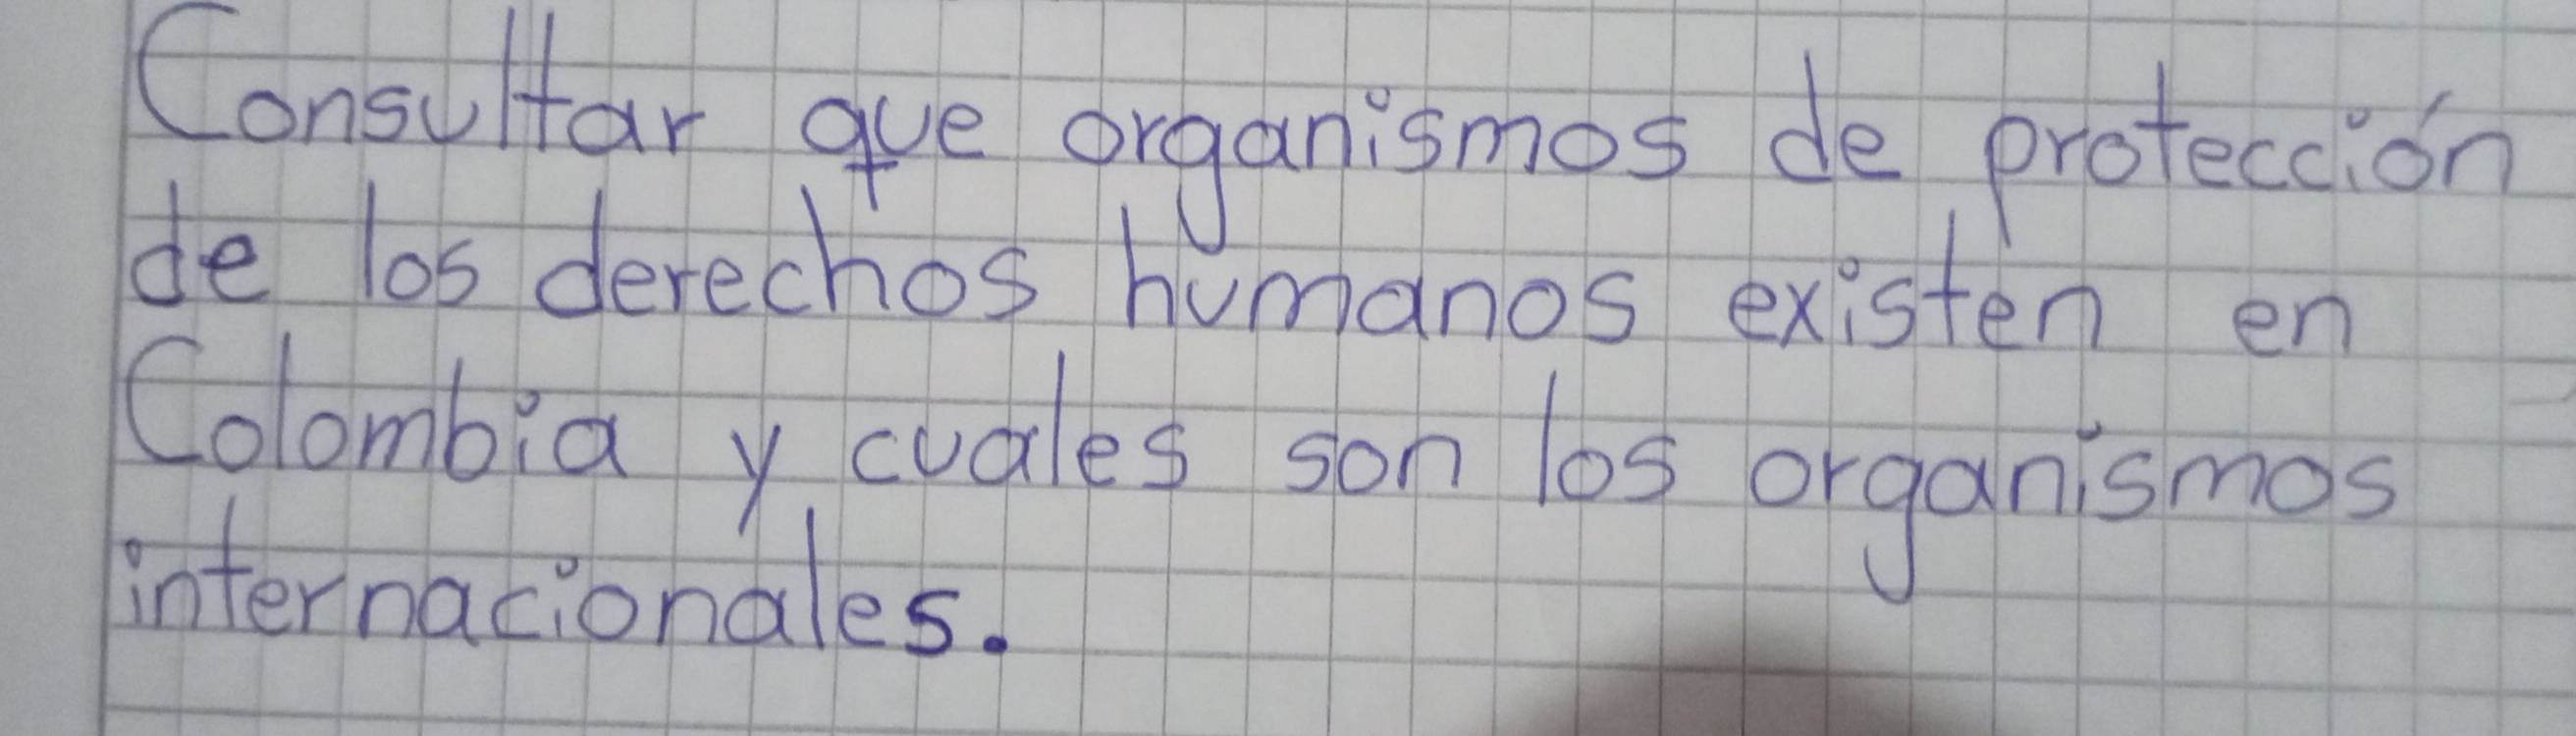 Consultar que organismos de protección
de los derechos humanos existen en
Colombia y cuales son los organismos
internacionales.